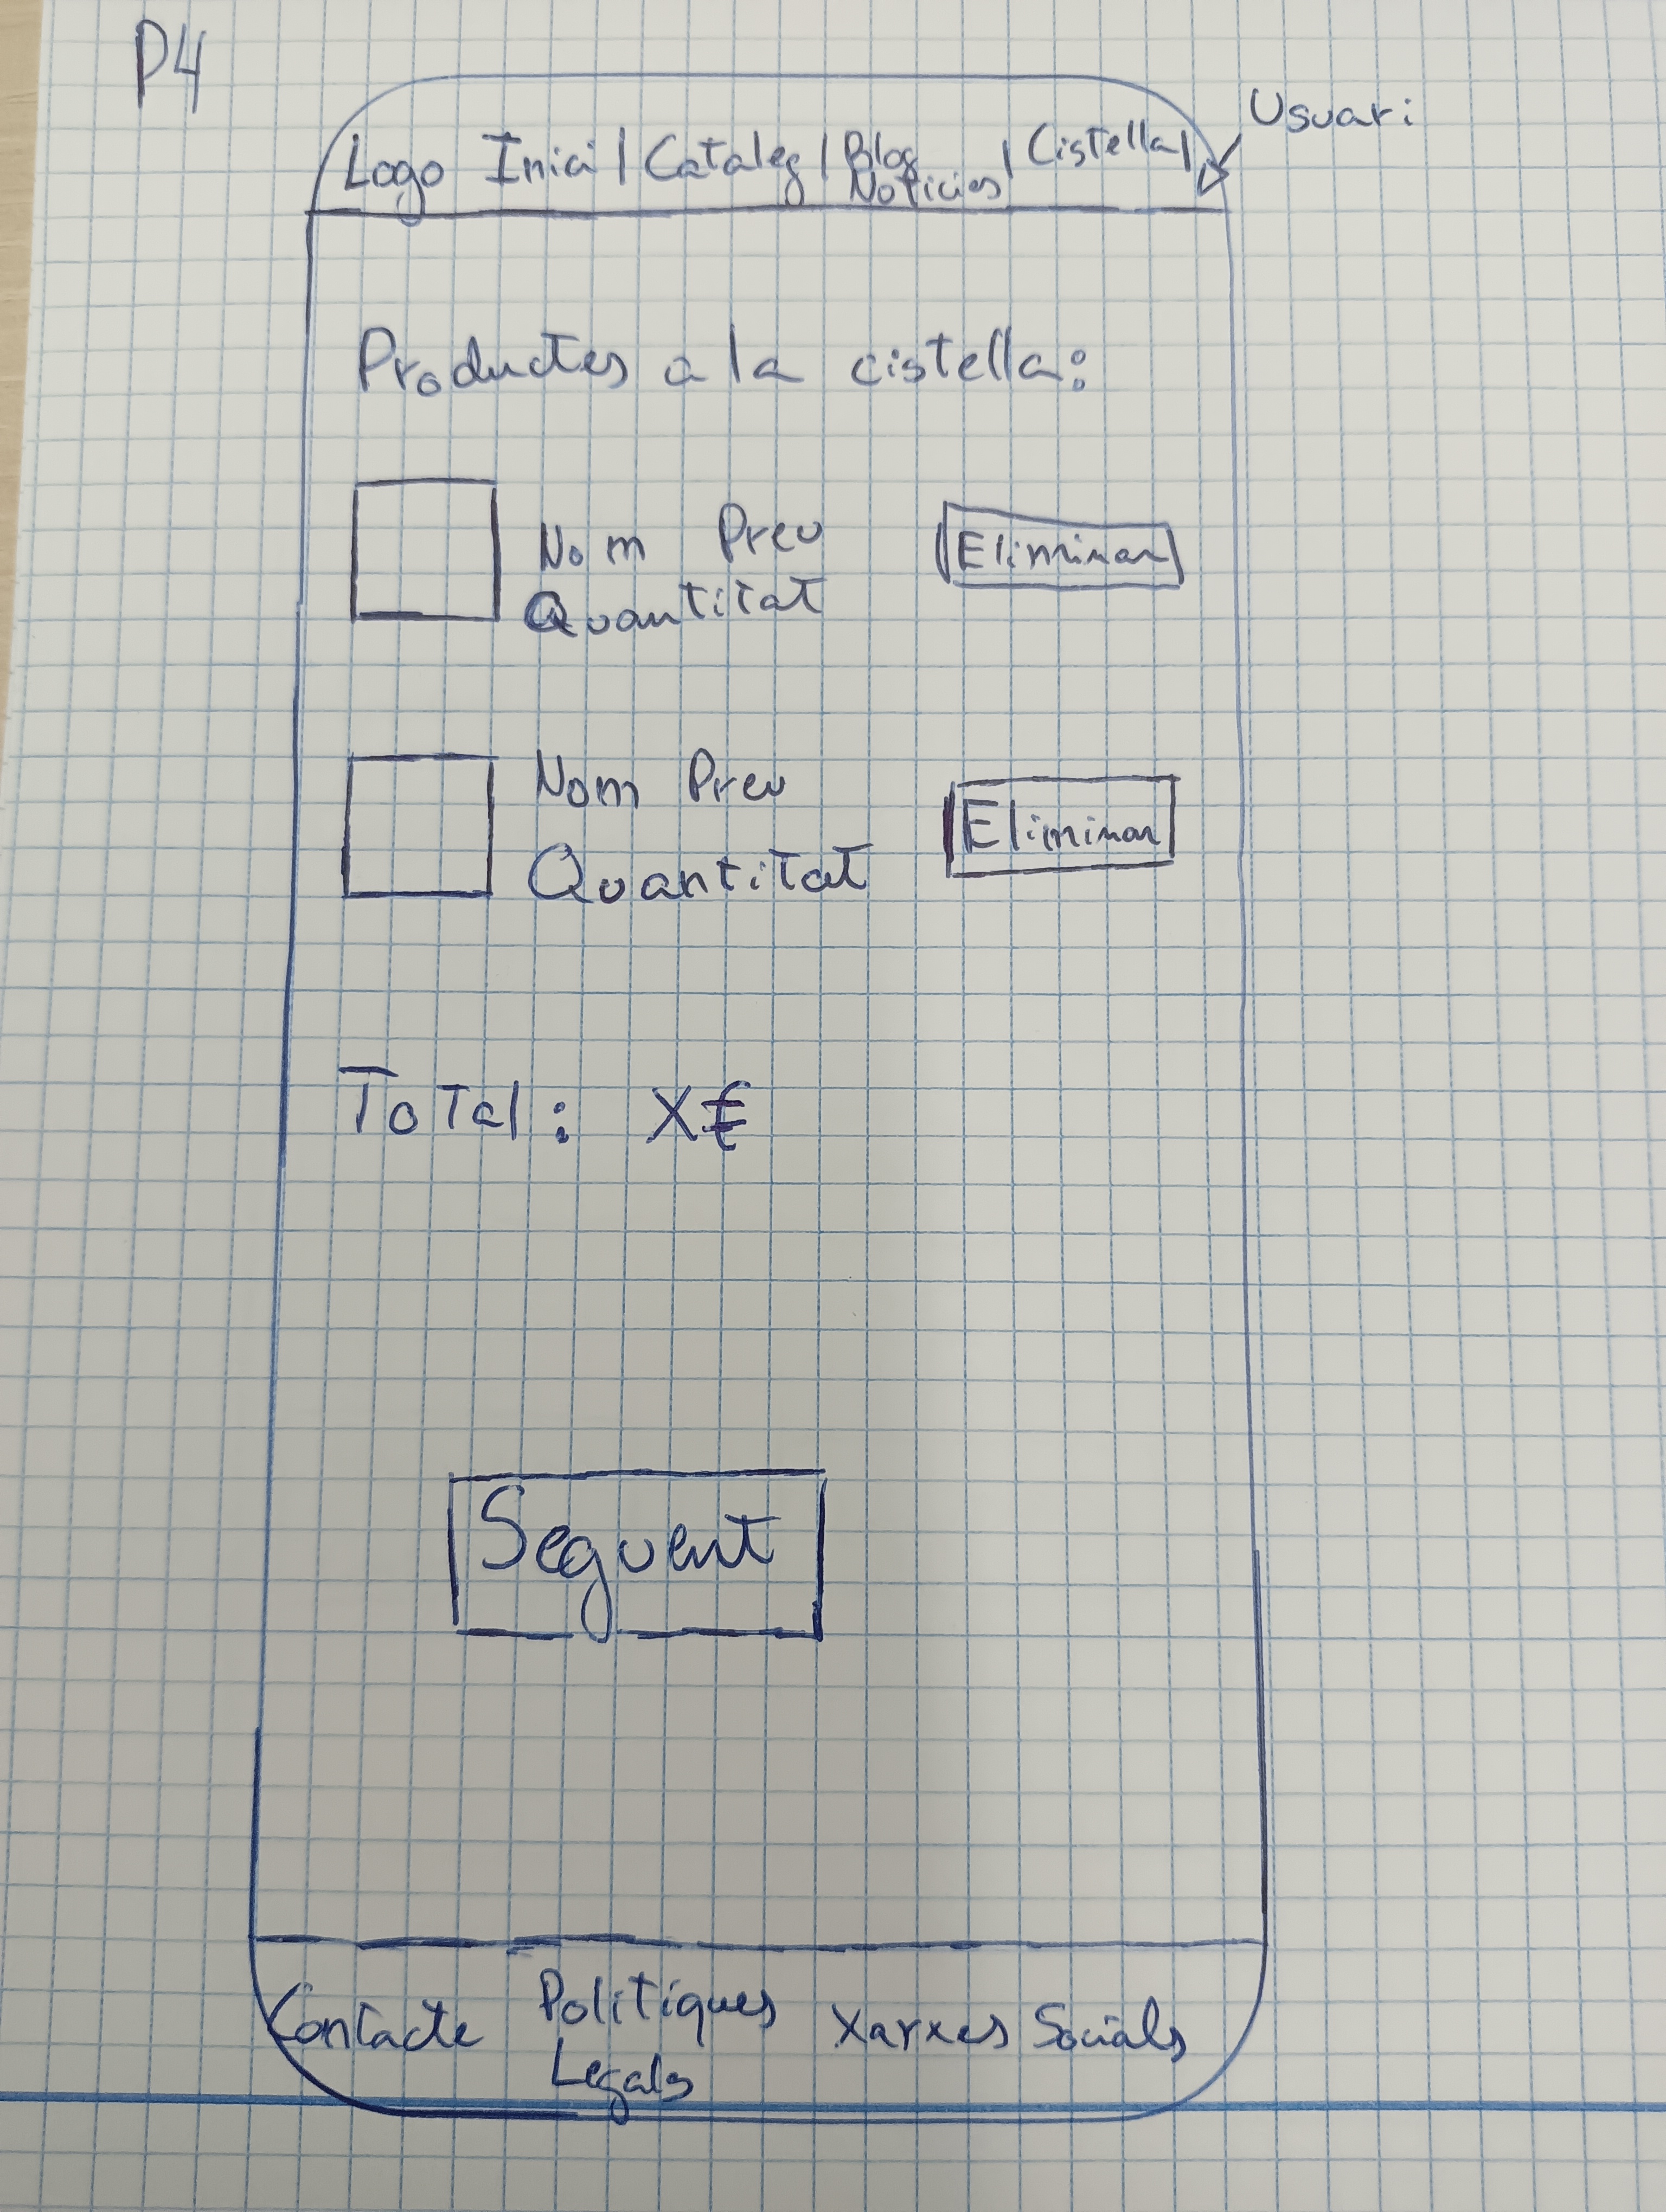 P4
Usuari
Logo Inici | Cataleg | Blog Noticies | Cistella |
Productes a la cistella:
Nom Preu Eliminar
Quantitat
Nom Preu Eliminar
Quantitat
Total: X€
Seguent
Contacte Politiques Legals Xarxes Socials